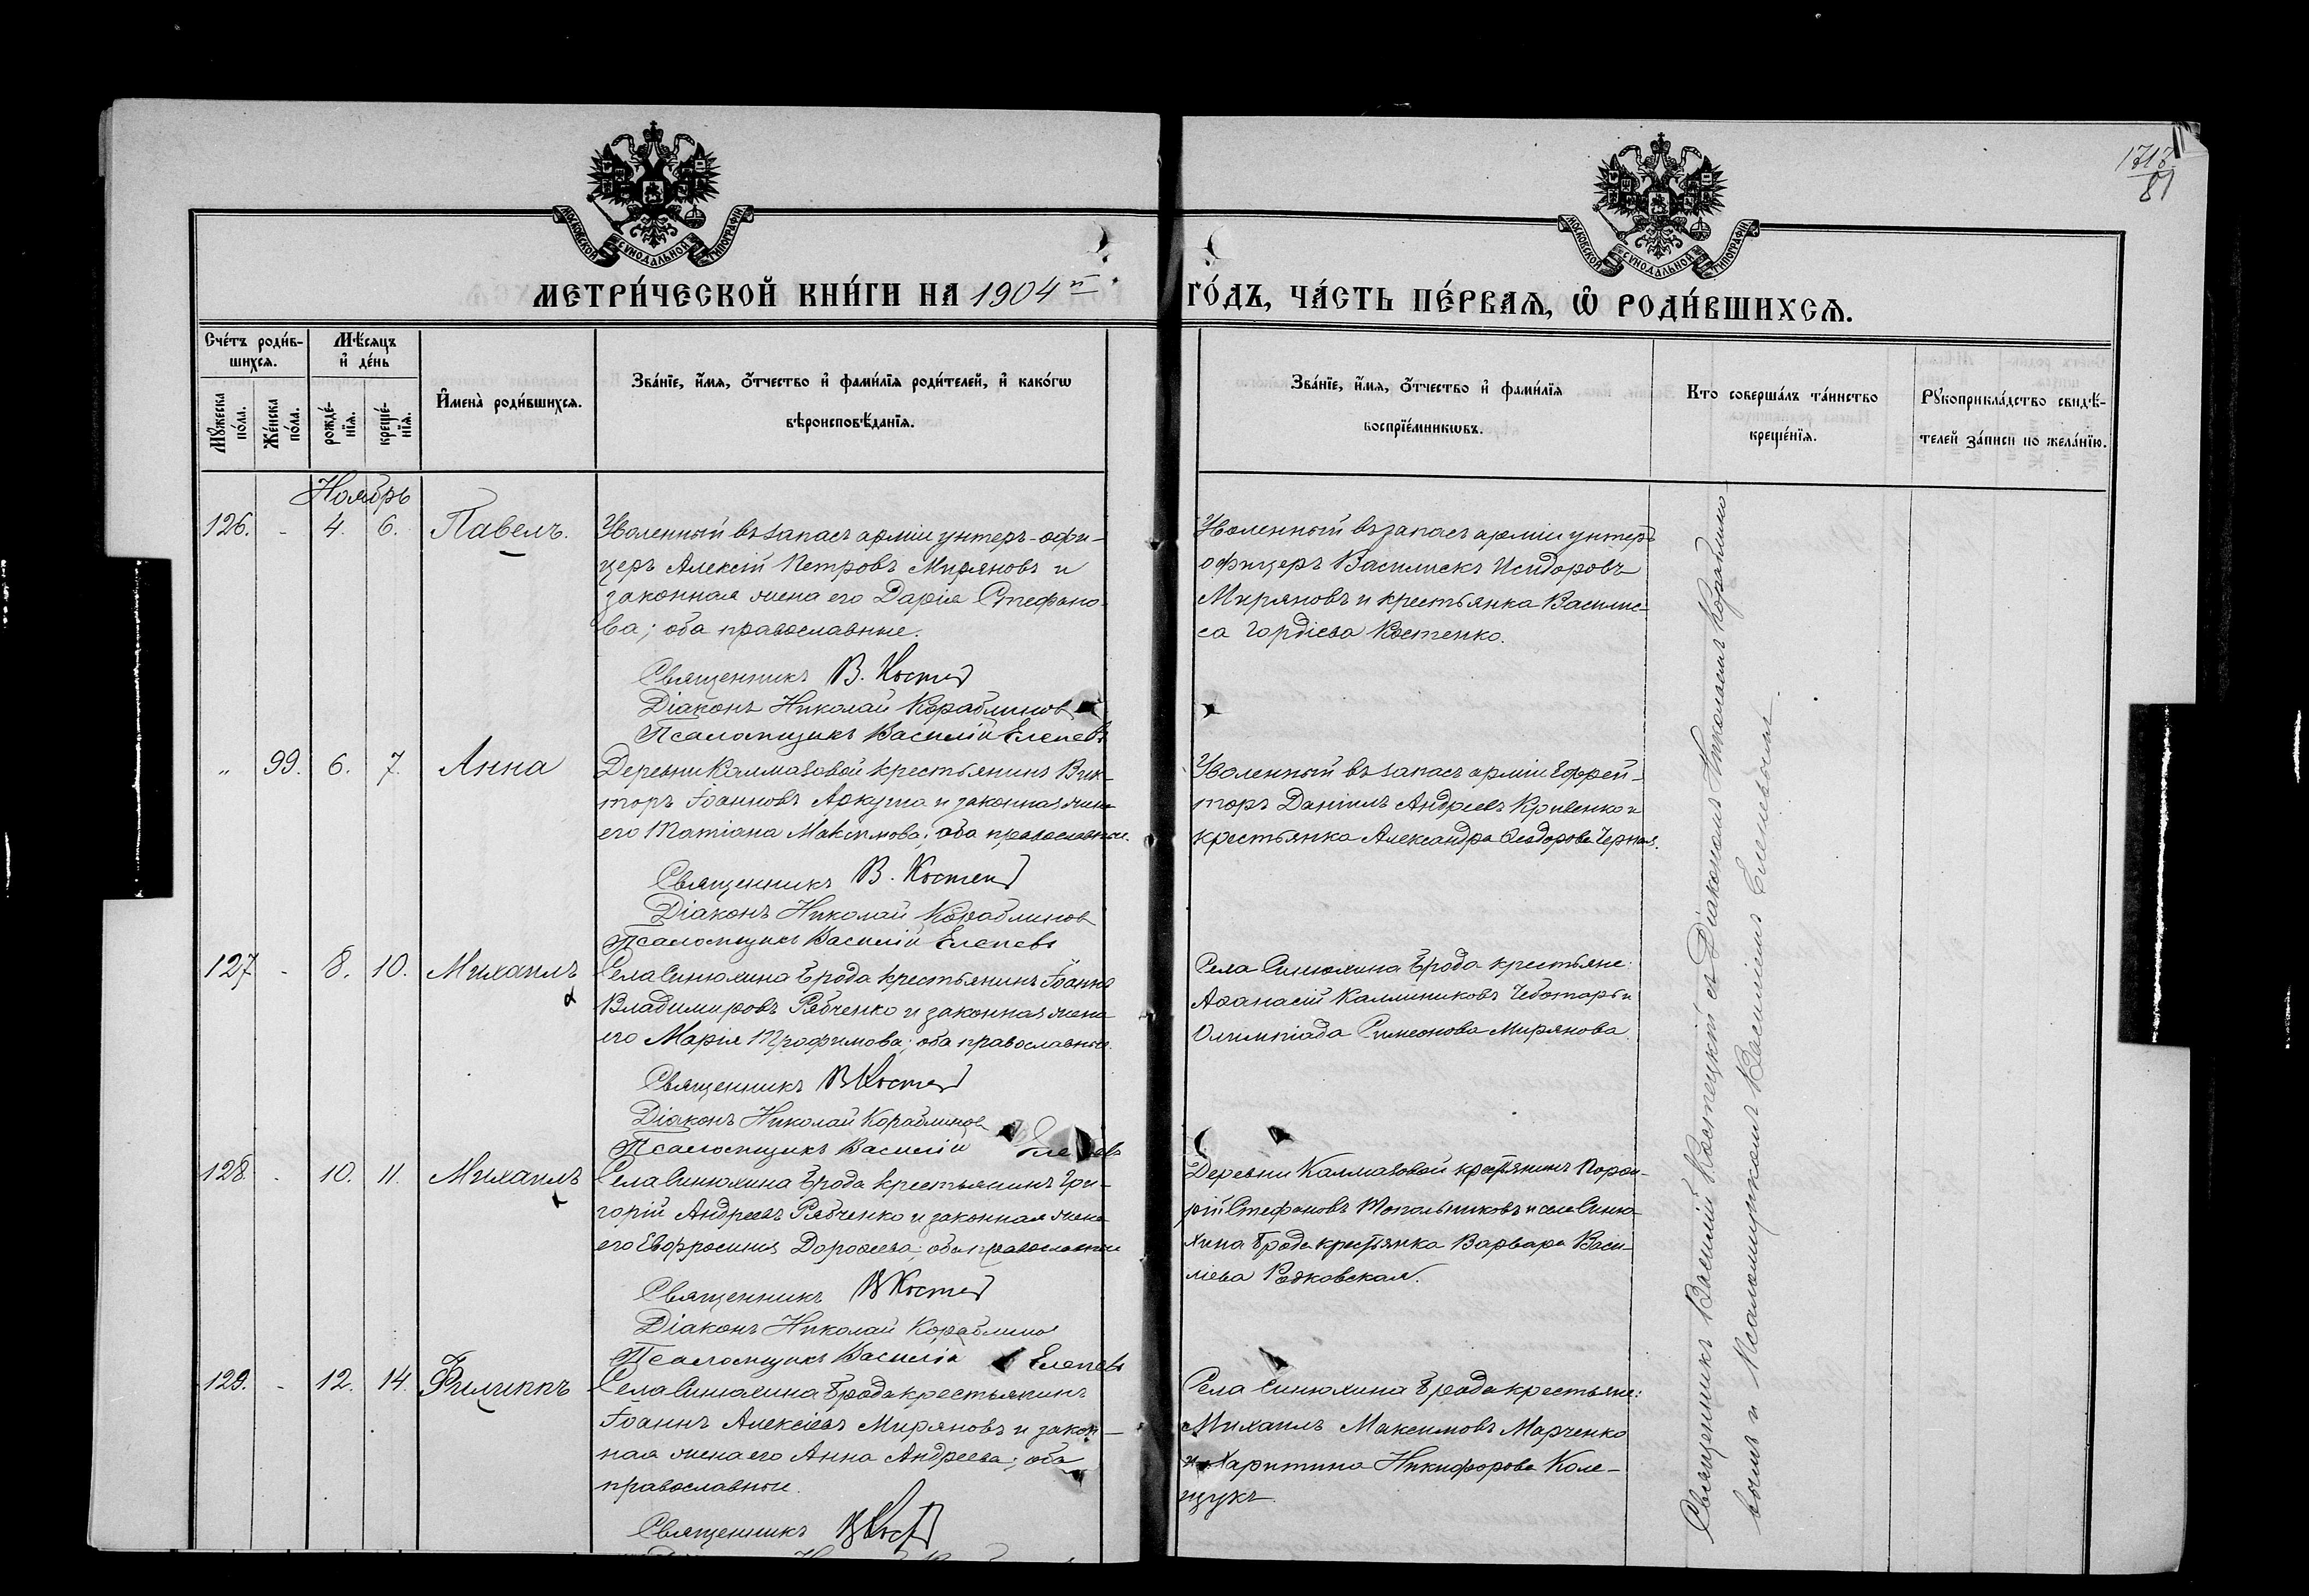 1717
81
МОСКОВСКОЙ СѴНОДАЛЬНОЙ ТИПОГРАФІИ
МОСКОВСКОЙ СѴНОДАЛЬНОЙ ТИПОГРАФІИ
МЕТРИ́ЧЕСКОЙ КНИ́ГИ НА 1904й
ГО́ДЪ, ЧА́СТЬ ПЕ́РВАЯ, Ѡ РОДИ́ВШИХСЯ.
Сче́тъ роди́в-
шихся.
Мѣ́сяцъ
и де́нь
Мꙋ́жеска
по́ла.
Же́нска
по́ла.
рожде́-
нїя.
креще́-
нїя.
Имена̀ роди́вшихся.
Зва́нїе, и́мя, о́тчество и фами́лїя роди́телей, и како́гѡ
вѣроисповѣ́данїя.
Зва́нїе, и́мя, о́тчество и фами́лїя
воспрїе́мникѡвъ.
Кто соверша́лъ та́инство
креще́нїя.
Рꙋкоприкла́дство свидѣ́-
телей за́писи по жела́нїю.
Ноябрь
126. - 4. 6. Павелъ.
Уволенный въ запасъ арміи унтеръ-офи-
церъ Алексій Петровъ Миряновъ и
законная жена его Дарія Стефано-
ва; оба православные.
Священникъ В. Костец
Діаконъ Николай Кораблинов
Псаломщикъ Василій Елепевъ
Уволенный въ запасъ арміи унтеръ
офицеръ Василискъ Исидоровъ
Миряновъ и крестьянка Василис-
са Гордіева Костенко.
" 99. 6. 7. Анна
Деревни Калмазовой крестьянинъ Вик-
торъ Іоанновъ и законная жена
его Татіана Максимова; оба православные.
Священникъ В. Костец
Діаконъ Николай Кораблинов
Псаломщикъ Василій Елепевъ
Уволенный въ запасъ арміи Ефрей-
торъ Даніилъ Андреевъ Кривенко и
крестьянка Александра Ѳеодорова Черная.
127 - 8. 10. Михаилъ
Села Синюхина Брода крестьянинъ Іоаннъ
Владимировъ Рябченко и законная жена
его Марія Трофимова; оба православные.
Священникъ В Костец
Діаконъ Николай Кораблинов
Псаломщикъ Василій Елепевъ
Села Синюхина Брода крестьяне:
Аѳанасій Каллиниковъ Чеботарь и
Олимпіада Симеонова Мирянова.
128. - 10. 11. Михаилъ
Села Синюхина Брода крестьянинъ Гри-
горій Андреевъ Рябченко и законная жена
его Евфросинія Дороѳеева; оба православные
Священникъ В Костец
Діаконъ Николай Кораблинов
Псаломщикъ Василій Елепевъ
Деревни Калмазовой крестьянинъ Порфи-
рій Стефановъ Топольниковъ и села Синю-
хина Брода крестьянка Варвара Васи-
ліева Радковская.
129. - 12. 14. Филиппъ
Села Синюхина Брода крестьянинъ
Іоаннъ Алексіевъ Миряновъ и закон-
ная жена его Анна Андреева; оба
православные.
Священникъ В Кост
Села Синюхина Брода крестьяне:
Михаилъ Максимовъ Марченко
и Харитина Никифорова Коле-
щукъ.
Священникъ Василій Костецкій съ Діакономъ Николаемъ Кораблино-
вымъ и Псаломщикомъ Василіемъ Елепевымъ.